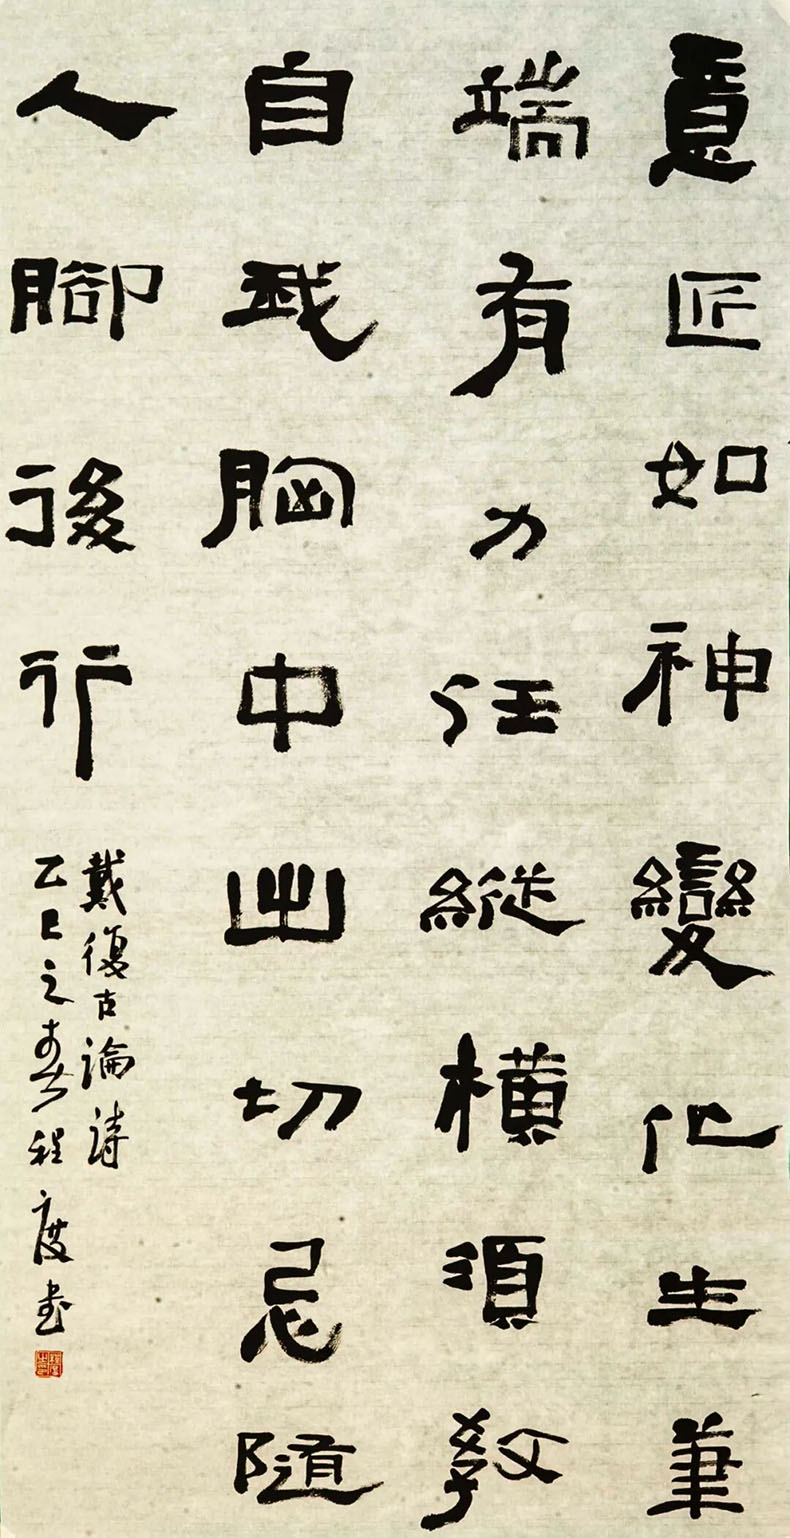 意匠如神變化生筆
端有力任縱橫須教
自我胸中出切忌隨
人腳後行
戴復古論詩
乙巳之春程度書